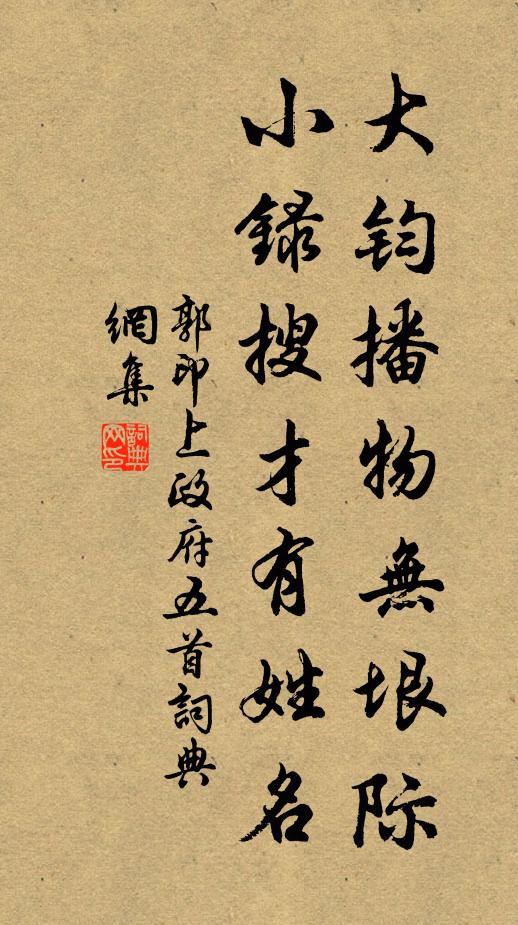 大钧播物無垠际
小録搜才有姓名
郭印上政府五首詞典
網集
詞典网印